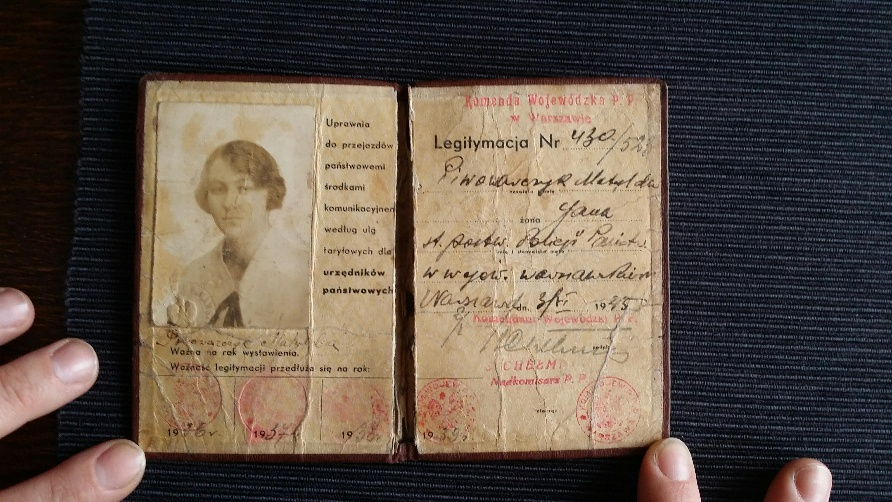 Uprawnia
do przejazdów
państwowemi
środkami
komunikacyjnemi
według ulg
taryfowych dla
urzędników
państwowych
Piwowarczyk Matylda
Ważna na rok wystawienia.
Ważność legitymacji przedłuża się na rok:
1936 r
1937 r
1938 r
Komenda Wojewódzka P. P.
w Warszawie
Legitymacja Nr 430/
Piwowarczyk Matylda
żona Jana
st. poster. Policji Państw.
w wojew. warszawskim
Warszawa dn. 3/VI 19
Komendant Wojewódzki P. P.
Nadkomisarz P. P.
1939 r